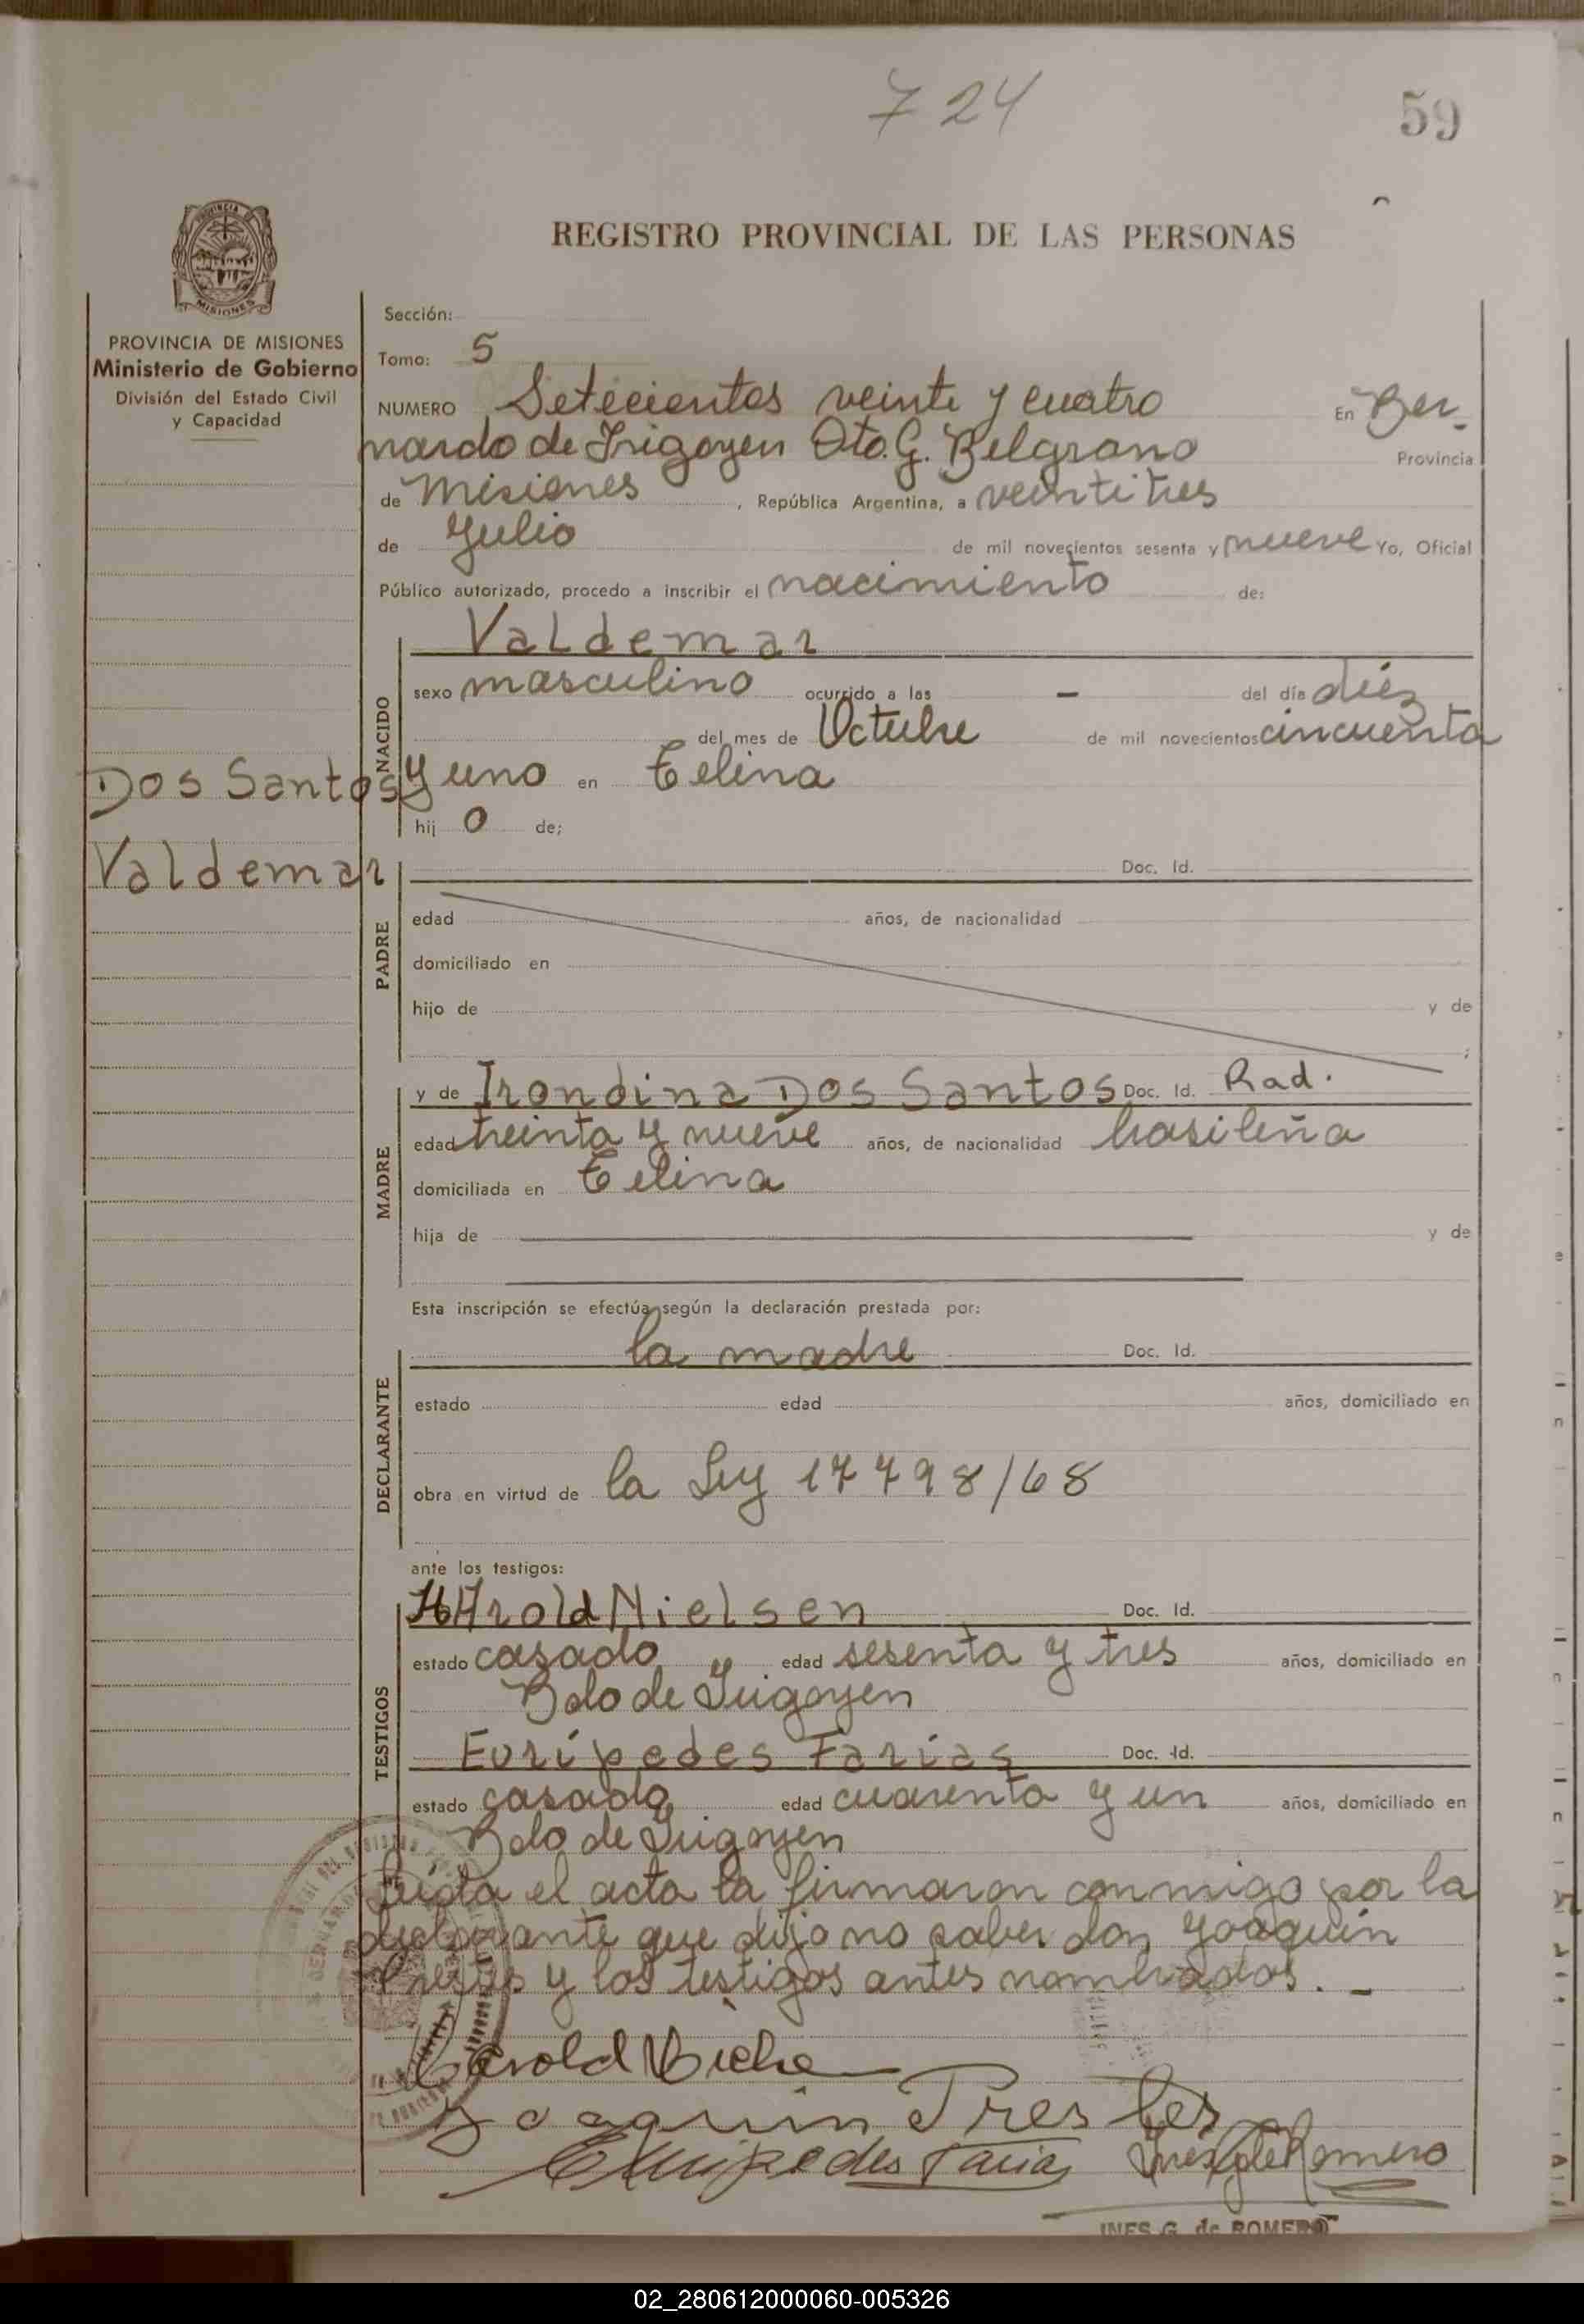 724
59
REGISTRO PROVINCIAL DE LAS PERSONAS
PROVINCIA DE MISIONES
Ministerio de Gobierno
División del Estado Civil
y Capacidad
Sección:
Tomo: 5
NUMERO Setecientos veinte y cuatro En Ber-
nardo de Irigoyen Dto. G. Belgrano Provincia
de Misiones, República Argentina, a veintitres
de Julio de mil novecientos sesenta y nueve Yo, Oficial
Público autorizado, procedo a inscribir el nacimiento de:
NACIDO
Valdemar
sexo masculino ocurrido a las - del día diez
del mes de Octubre de mil novecientos cincuenta
y uno en Celina
hij o de;
Dos Santos
Valdemar
PADRE
Doc. Id.
edad años, de nacionalidad
domiciliado en
hijo de y de
;
MADRE
y de Irondina Dos Santos Doc. Id. Rad.
edad treinta y nueve años, de nacionalidad brasileña
domiciliada en Celina
hija de y de
Esta inscripción se efectúa según la declaración prestada por:
DECLARANTE
la madre Doc. Id.
estado edad años, domiciliado en
obra en virtud de la Ley 17798/68
ante los testigos:
TESTIGOS
HArold Nielsen Doc. Id.
estado casado edad sesenta y tres años, domiciliado en
Bdo de Irigoyen
Eurípedes Farias Doc. Id.
estado casado edad cuarenta y un años, domiciliado en
Bdo de Irigoyen
Leída el acta la firmaron conmigo por la
declarante que dijo no saber don Joaquin
Prestes y los testigos antes nombrados. -
Harold
Joaquin Prestes
Euripedes Farias Romero
INES G. de ROMERO
02_280612000060-005326